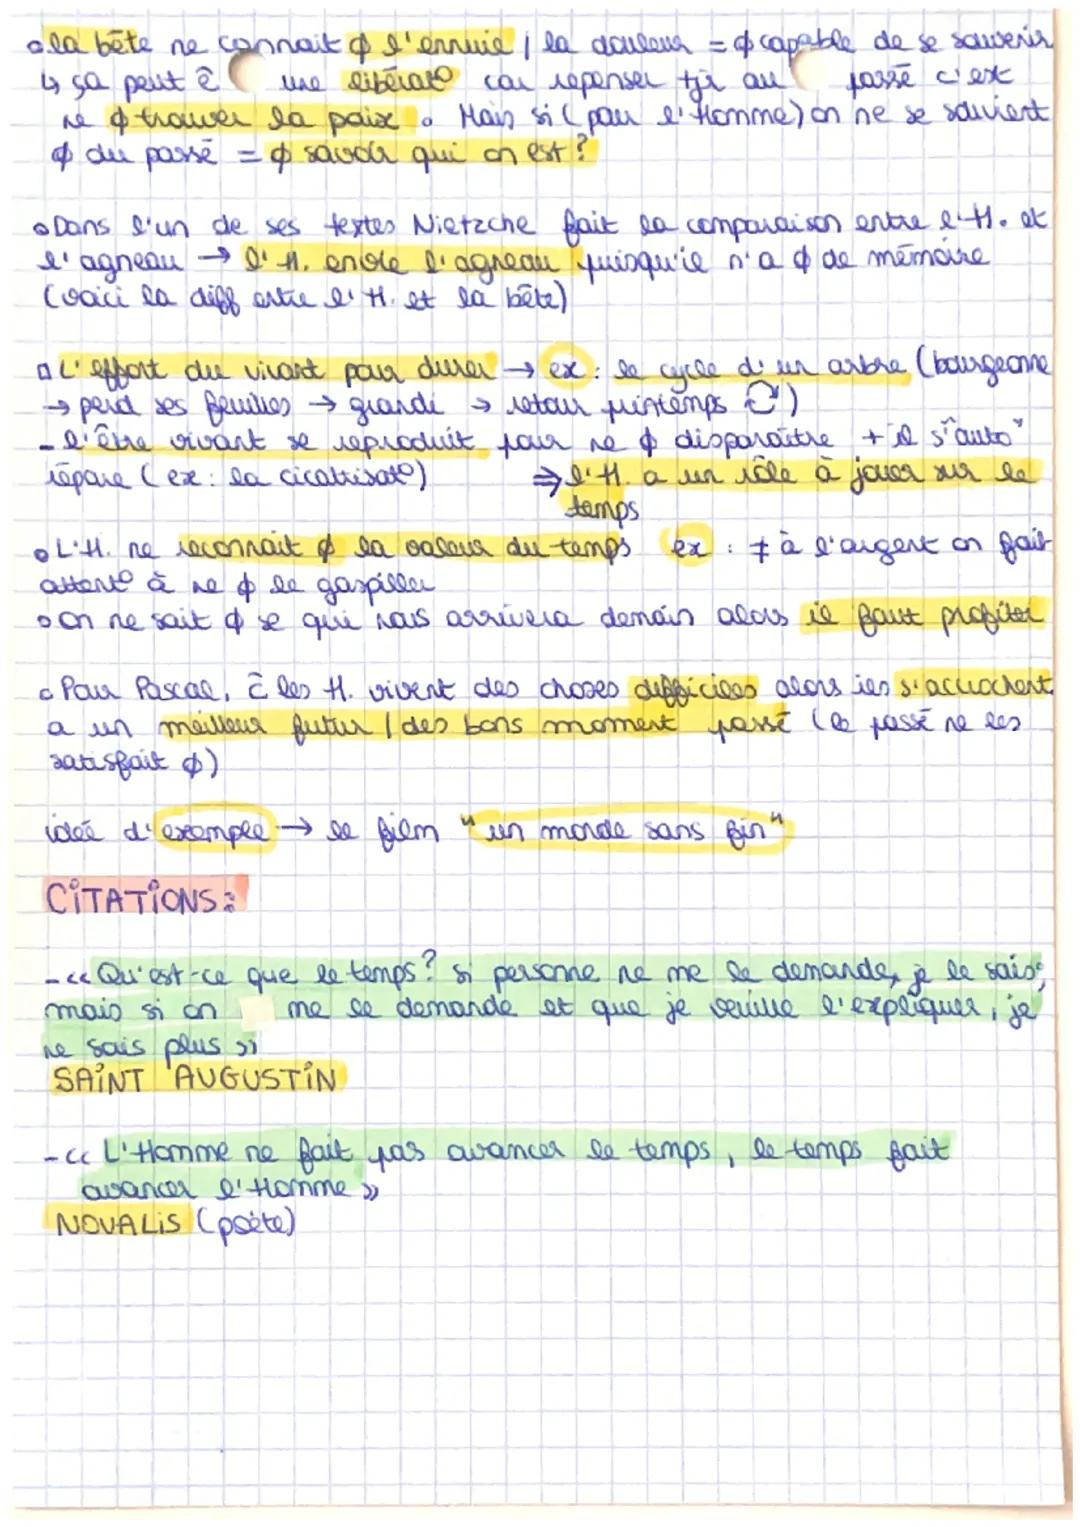 o la bête ne connait φ l'ennuie / la douleur = φ capable de se souvenir
↳ ça peut ê une libérat° car repenser tjr au passé c'est
ne φ trouver la paix. Mais si (pour l'Homme) on ne se souvient
φ du passé = φ savoir qui on est?
o Dans l'un de ses textes Nietzche fait la comparaison entre l'H. et
l'agneau → l'H. envie l'agneau puisqu'il n'a φ de mémoire
(voici la diff entre l'H. et la bête)
□ L'effort du vivant pour durer → ex : le cycle d'un arbre (bourgeonne
→ perd ses feuilles → grandi → retour printemps ↻)
- l'être vivant se reproduit pour ne φ disparaître + il s'"auto"
répare (ex : la cicatrisat°) ⇒ l'H. a un rôle à jouer sur le
temps
o L'H. ne reconnait φ la valeur du temps ex : ≠ à l'argent on fait
attent° à ne φ le gaspiller
o On ne sait φ se qui nous arrivera demain alors il faut profiter
o Pour Pascal, c̄ les H. vivent des choses difficiles alors ils s'accrochent
a un meilleur futur / des bons moment passé (le passé ne les
satisfait φ)
idée d'exemple → le film "un monde sans fin"
CITATIONS :
- << Qu'est-ce que le temps? si personne ne me le demande, je le sais;
mais si on me le demande et que je veuille l'expliquer, je
ne sais plus >>
SAINT AUGUSTIN
- << L'Homme ne fait pas avancer le temps, le temps fait
avancer l'Homme >>
NOVALIS (poète)